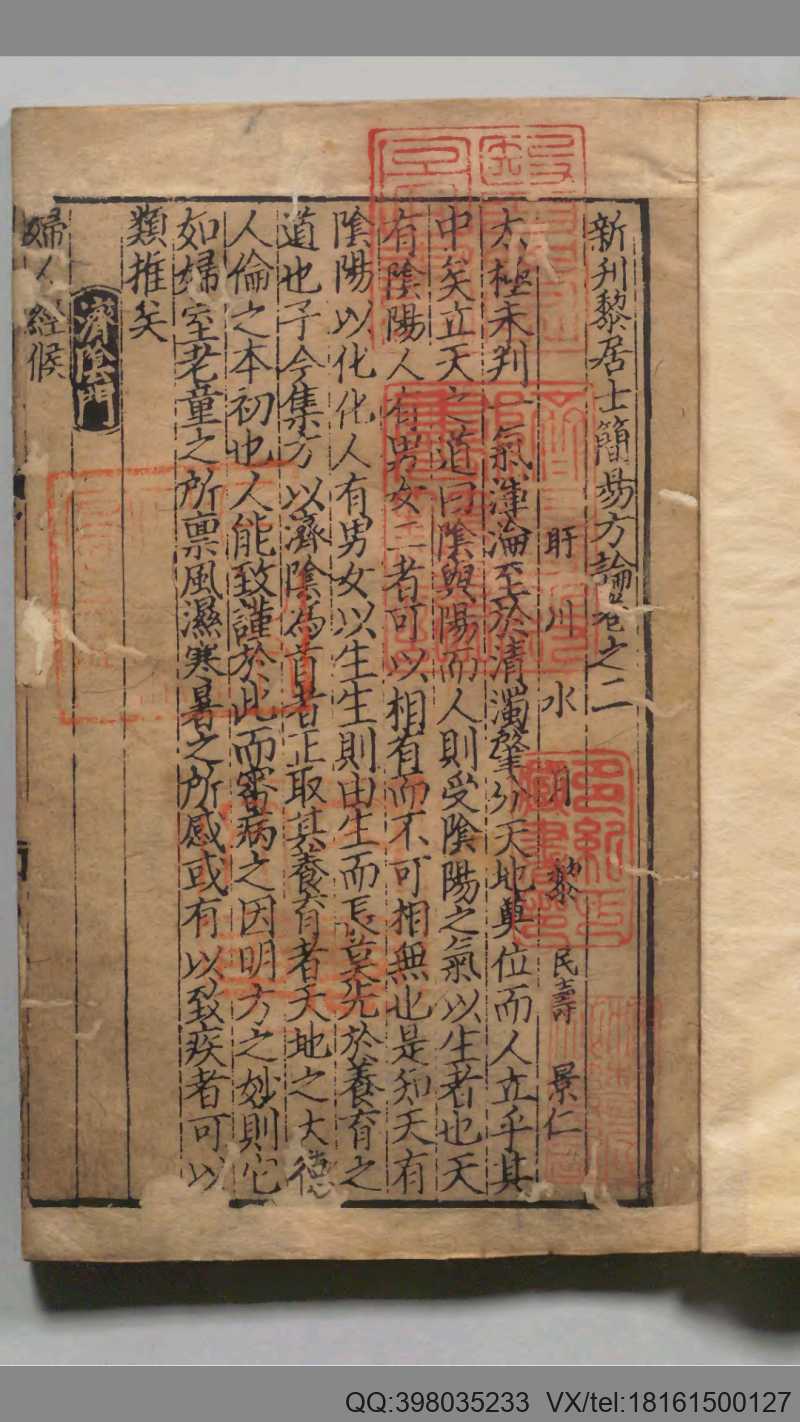 新刊黎居士簡易方論卷之二
盱川水月黎民壽景仁
太極未判一氣渾淪至於清濁肇分天地奠位而人立乎其
中矣立天之道曰陰與陽而人則受陰陽之氣以生者也天
有陰陽人有男女二者可以相有而不可相無也是知天有
陰陽以化化人有男女以生生則由生而長莫先於養育之
道也予今集方以濟陰為首者正取其養育者天地之大德
人倫之本初也人能致謹於此而審病之因明方之妙則它
如婦室老童之所禀風濕寒暑之所感或有以致疾者可以
類推矣
濟陰門
婦人經候
QQ:398035233 VX/tel:18161500127